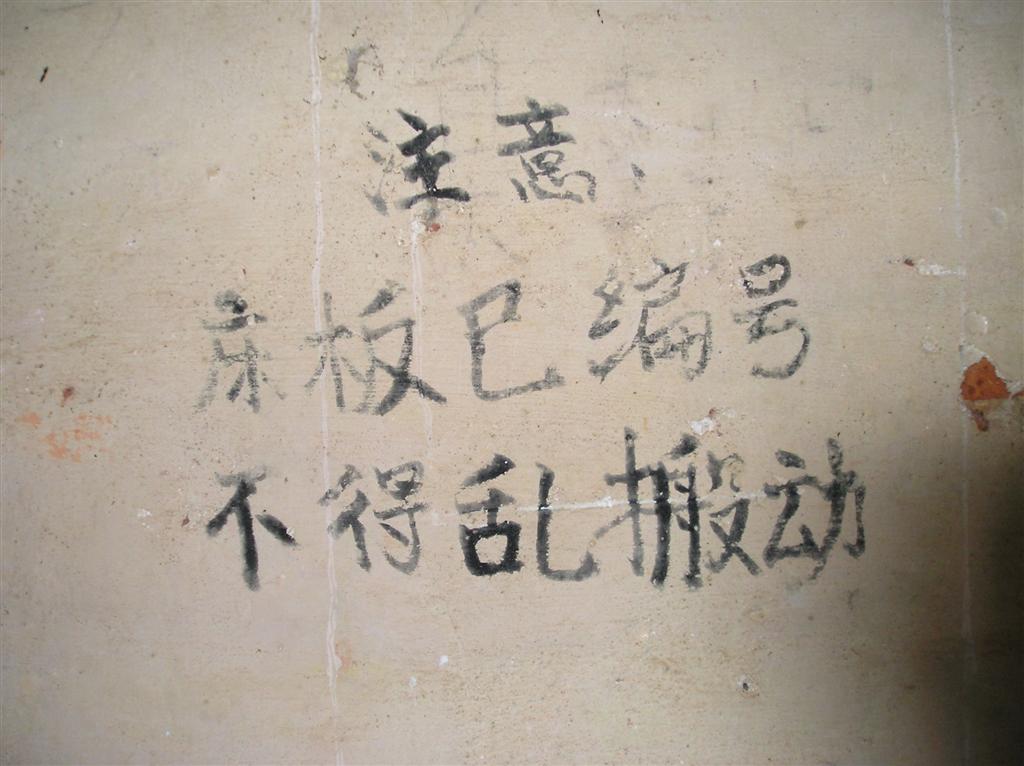 注意
床板已编号
不得乱搬动